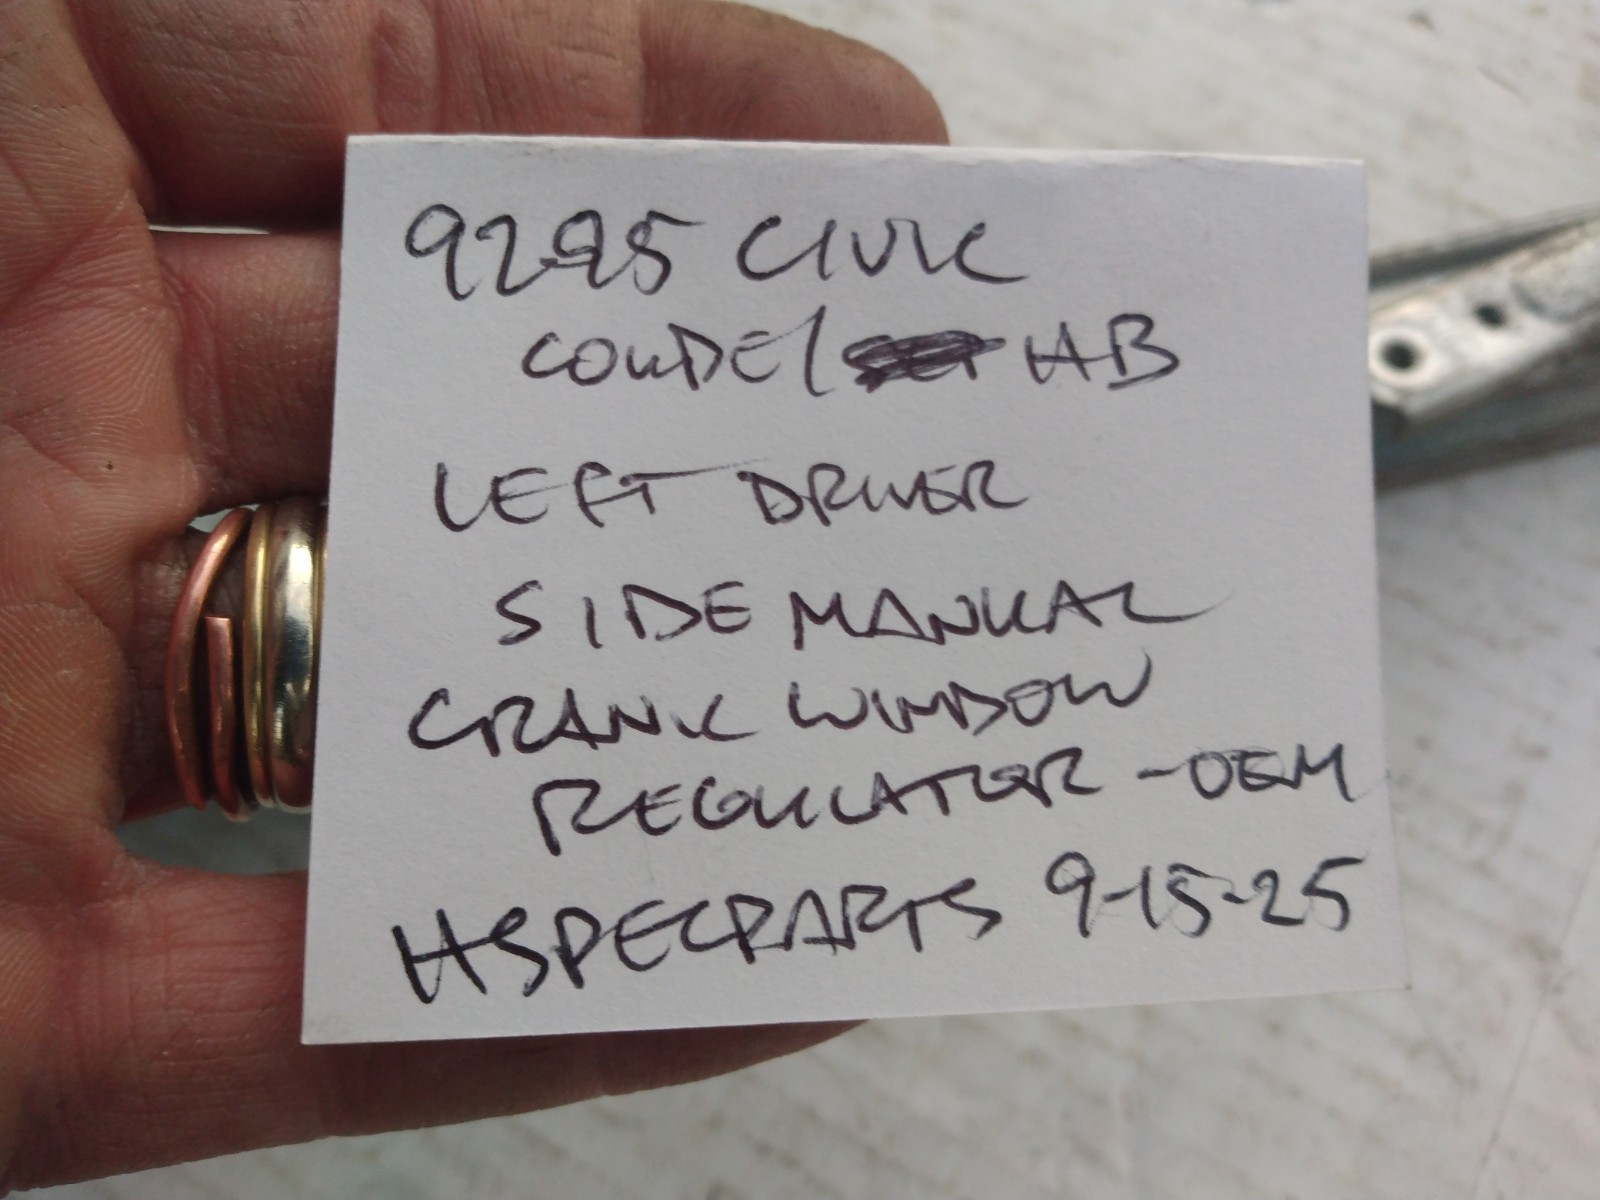 9295 CIVIC
COUPE/ HB
LEFT DRIVER
SIDE MANUAL
CRANK WINDOW
REGULATOR -OEM
HSPECPARTS 9-15-25